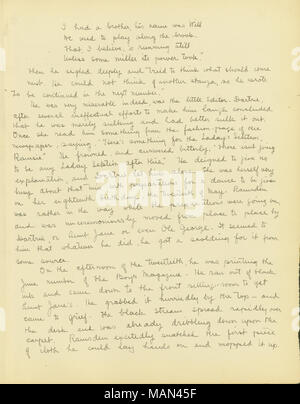 I had a brother, his name was Will
We used to play along the brook.
That I believe, is running still
Unless some miller its power took."
Then he sighed deeply and tried to think what should come
next. He could not think of another stanza, so he wrote
"To be continued in the next number."
He was very miserable indeed was the little Editor. Beatrice
after several ineffectual efforts to make him laugh, concluded
that he was merely sulking and had better sulk it out.
Once she read him something from the fashion page of the
newspaper, saying, "Here's something for the Ladies' Edition,
Ramsie." He frowned and answered bitterly, "There isn't going
to be any Ladies' Edition after this." He designed to give no
explanation and Beatrice let him alone. She was herself very
busy about that time with preparations for a dance to be given
on her eighteenth birthday, the twentieth of May. Ramsden
was rather in the way while the preparations were going on
and was unceremoniously moved from place to place by
Beatrice or Aunt Jane or even Ole George. It seemed to
him that whatever he did he got a scolding for it from
some source.
On the afternoon of the twentieth he was printing the
June number of the Boy's Magazine. He ran out of black
ink and came down to the front sitting-room to get
Aunt Jane's. He grabbed it hurriedly by the top — and
came to grief. The black stream spread rapidly over
the desk and was already dribbling down upon the
carpet. Ramsden excitedly snatched the first piece
of cloth he could lay hands on and mopped it up.
alamy
MAN45F